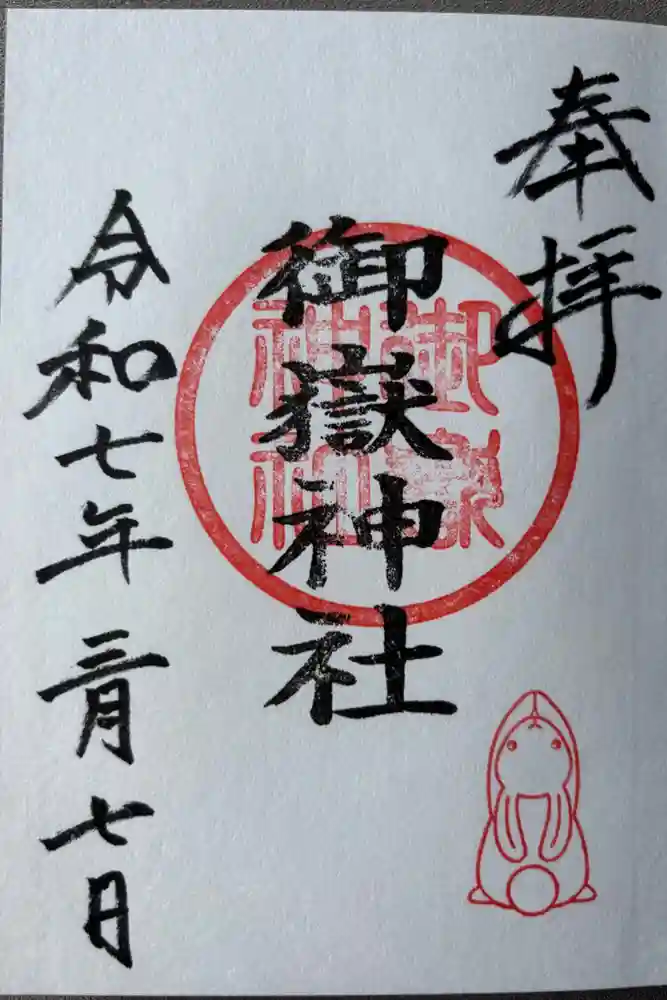 奉拝
御嶽神社
御嶽
神社
令和七年三月七日